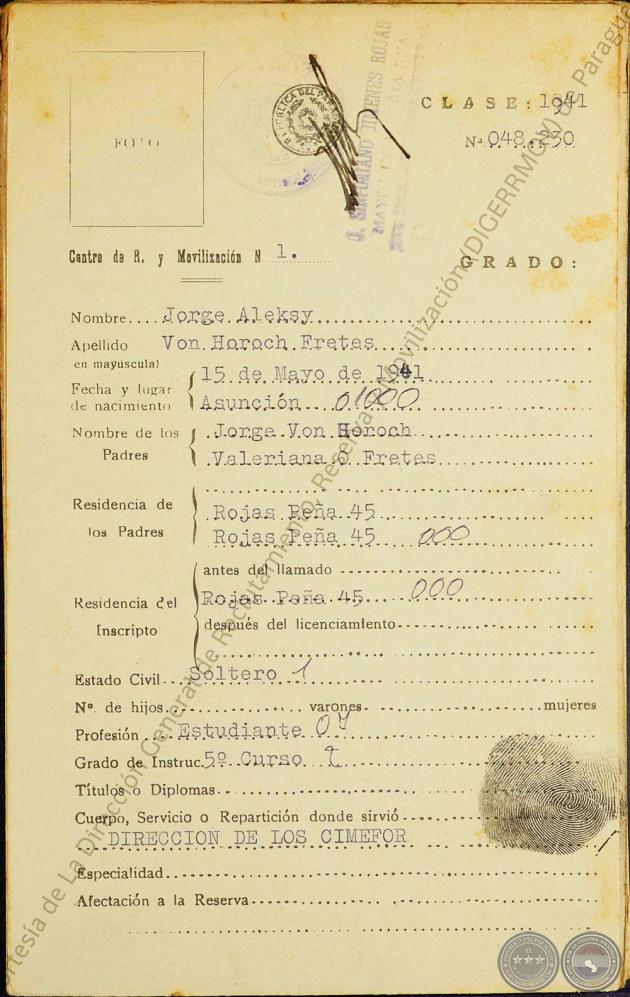 FOTO
REPUBLICA DEL PARAGUAY
CLASE: 1941
Nº 048.230
Centro de R. y Movilización N 1.
GRADO:
Nombre.... Jorge Aleksy
Apellido Von Horoch Fretes
en mayúscula)
Fecha y lugar de nacimiento
15 de Mayo de 1941
Asunción 01000
Nombre de los Padres
Jorge Von Horoch
Valeriana O Fretes
Residencia de los Padres
Rojas Peña 45
Rojas Peña 45 000
Residencia del Inscripto
antes del llamado
Rojas Peña 45 000
después del licenciamiento
Estado Civil Soltero 1
Nº. de hijos varones mujeres
Profesión Estudiante 07
Grado de Instruc. 5º Curso
Títulos o Diplomas
Cuerpo, Servicio o Repartición donde sirvió
DIRECCION DE LOS CIMEFOR
Especialidad
Afectación a la Reserva
ortesía de La Dirección General de Reclutamiento, Reserva y Movilización (DIGERRMOV) de Paragua